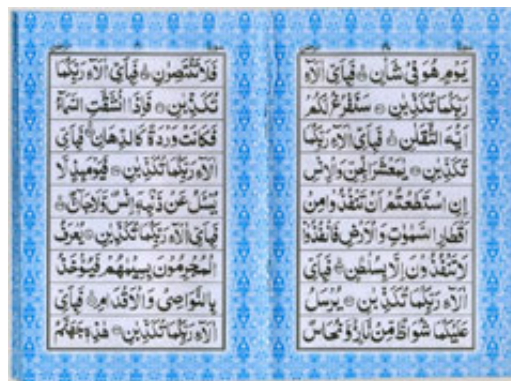 يَوْمٍ هُوَ فِىْ شَاْنٍ ۚ فَبِاَىِّ اٰلَآءِ
رَبِّكُمَا تُكَذِّبٰنِ ۝ سَنَفْرُغُ لَكُمْ
اَيُّهَ الثَّقَلٰنِ ۚ فَبِاَىِّ اٰلَآءِ رَبِّكُمَا
تُكَذِّبٰنِ ۝ يٰمَعْشَرَ الْجِنِّ وَالْاِنْسِ
اِنِ اسْتَطَعْتُمْ اَنْ تَنْفُذُوْا مِنْ
اَقْطَارِ السَّمٰوٰتِ وَالْاَرْضِ فَانْفُذُوْا
لَا تَنْفُذُوْنَ اِلَّا بِسُلْطٰنٍ ۚ فَبِاَىِّ
اٰلَآءِ رَبِّكُمَا تُكَذِّبٰنِ ۝ يُرْسَلُ
عَلَيْكُمَا شُوَاظٌ مِّنْ نَّارٍ وَّنُحَاسٌ
فَلَا تَنْتَصِرٰنِ ۚ فَبِاَىِّ اٰلَآءِ رَبِّكُمَا
تُكَذِّبٰنِ ۝ فَاِذَا انْشَقَّتِ السَّمَآءُ
فَكَانَتْ وَرْدَةً كَالدِّهَانِ ۚ فَبِاَىِّ
اٰلَآءِ رَبِّكُمَا تُكَذِّبٰنِ ۝ فَيَوْمَئِذٍ لَّا
يُسْئَلُ عَنْ ذَنْۢبِهٖٓ اِنْسٌ وَّلَا جَآنٌّ ۚ
فَبِاَىِّ اٰلَآءِ رَبِّكُمَا تُكَذِّبٰنِ ۝ يُعْرَفُ
الْمُجْرِمُوْنَ بِسِيْمٰهُمْ فَيُؤْخَذُ
بِالنَّوَاصِىْ وَالْاَقْدَامِ ۚ فَبِاَىِّ
اٰلَآءِ رَبِّكُمَا تُكَذِّبٰنِ ۝ هٰذِهٖ جَهَنَّمُ